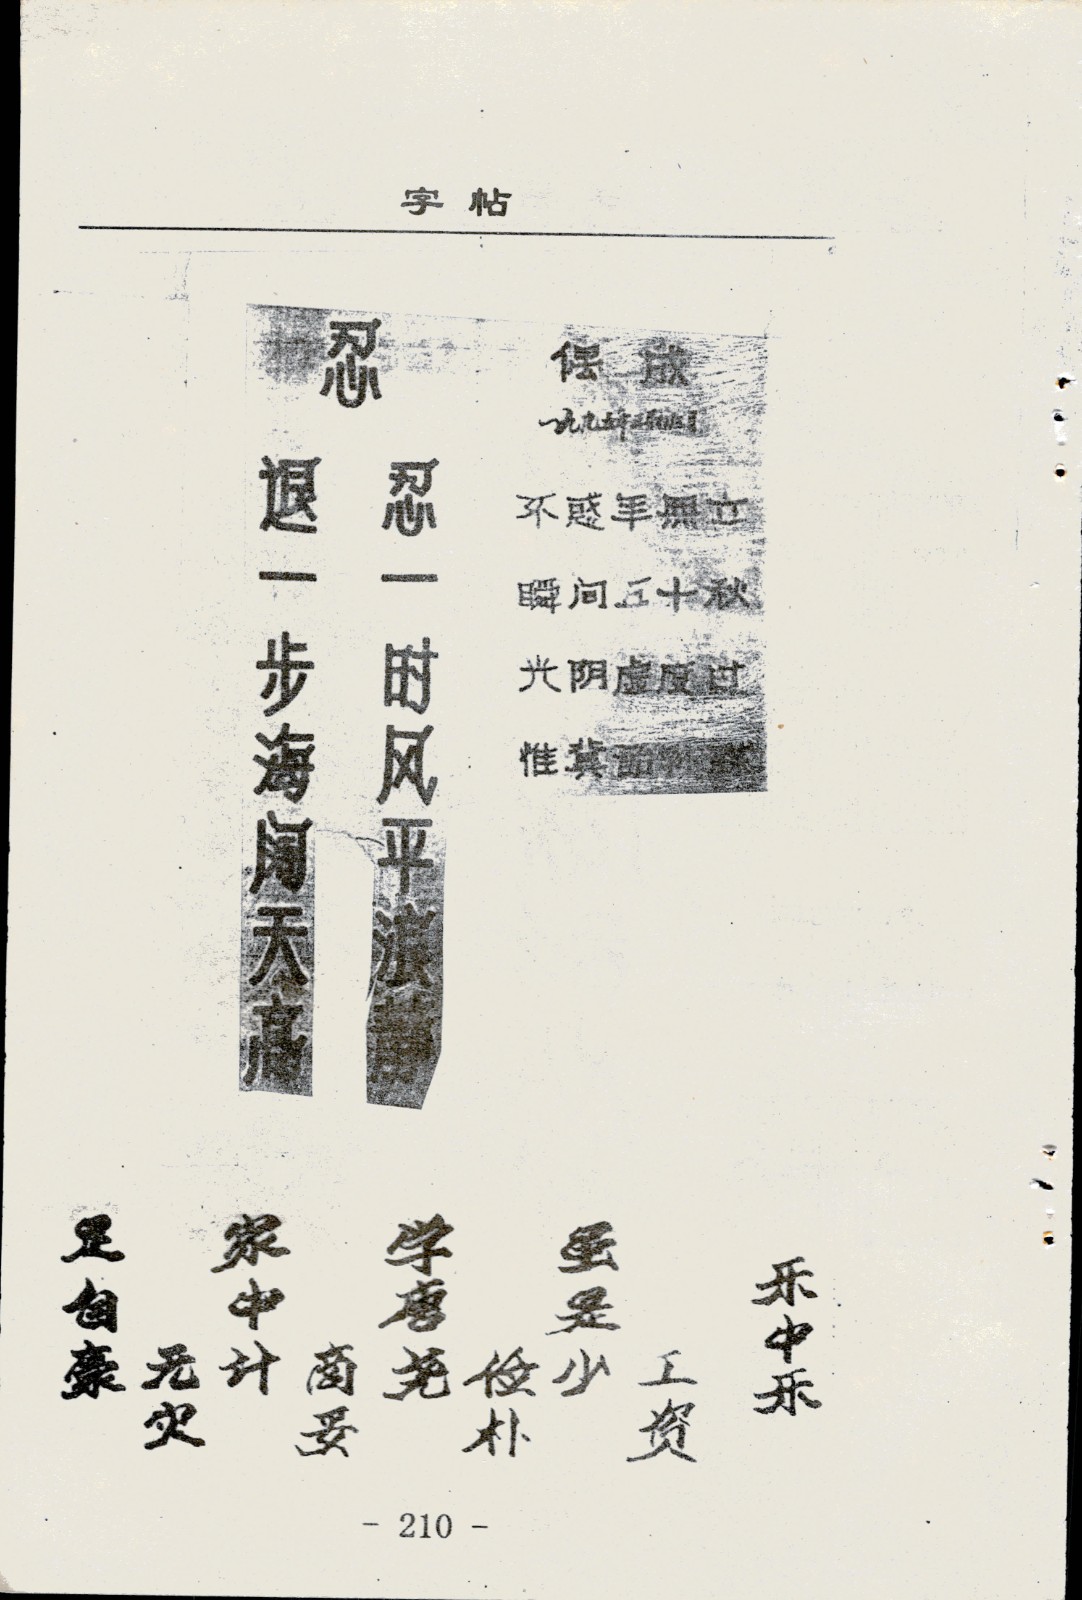 字帖
忍
忍一时风平浪静
退一步海阔天高
偶成
一九九五年
不惑年无立
瞬间五十秋
光阴虚度过
惟冀
乐中乐
工资
虽是少
俭朴
学唐尧
商妥
家中计
无灾
足自豪
- 210 -